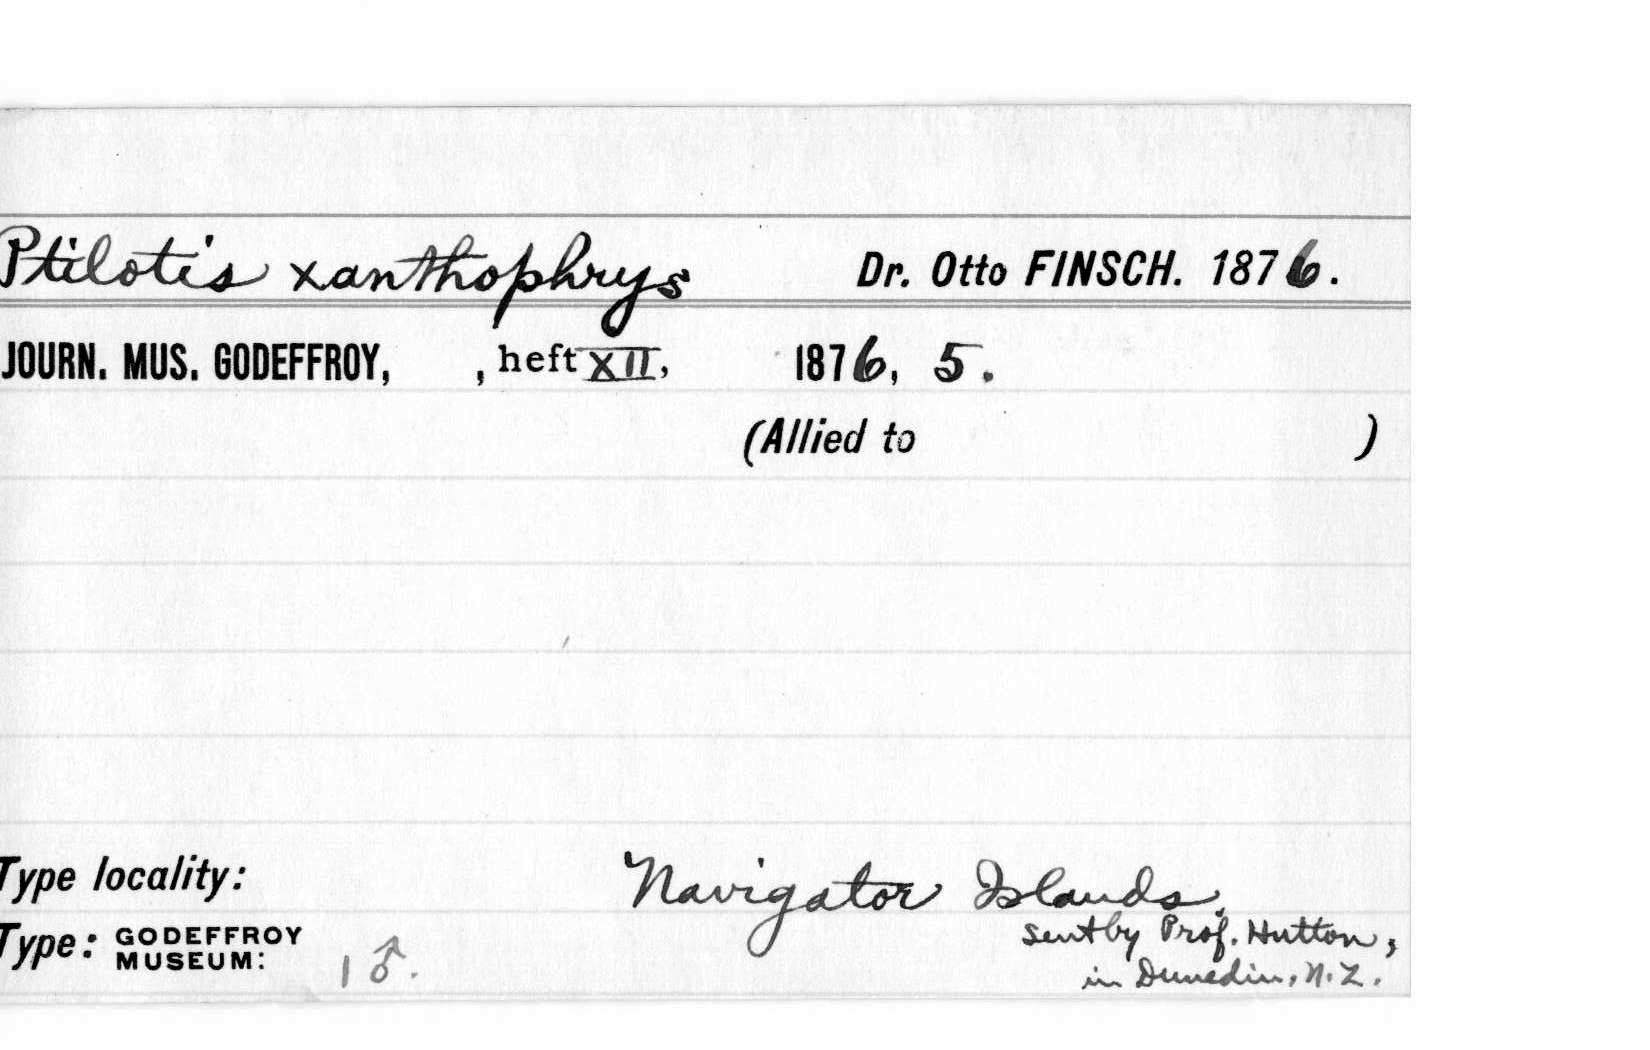 Ptilotis xanthophrys Dr. Otto FINSCH. 1876.
JOURN. MUS. GODEFFROY, , heft XII, 1876, 5.
(Allied to )
Type locality: Navigator Islands,
sent by Prof. Hutton,
Type: GODEFFROY MUSEUM: 1 ♂.
in Dunedin, N.Z.